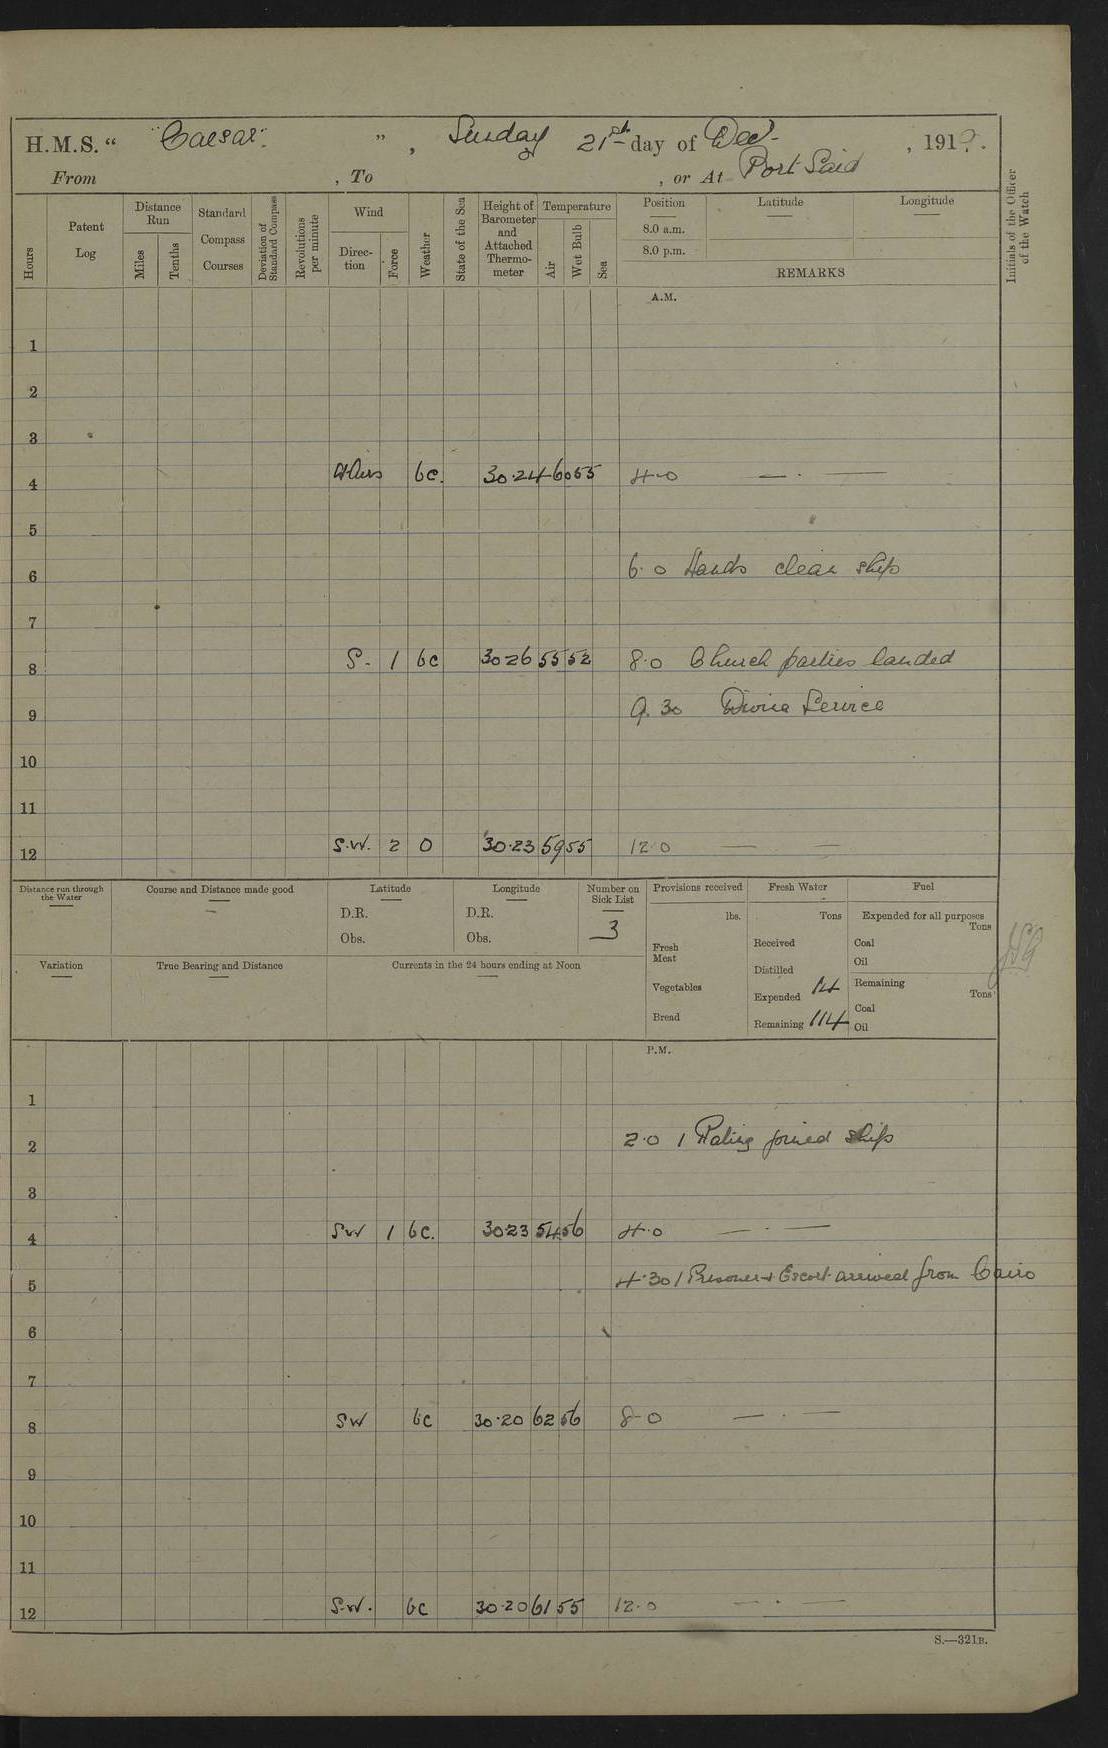 H.M.S. “ "Caesar" ” , Sunday 21st day of Dec. , 1919.
From , To , or At Port Said
Hours
Patent Log
Distance Run
Miles
Tenths
Standard Compass Courses
Deviation of Standard Compass
Revolutions per minute
Wind
Direction
Force
Weather
State of the Sea
Height of Barometer and Attached Thermometer
Temperature
Air
Wet Bulb
Sea
Position
8.0 a.m.
8.0 p.m.
Latitude
Longitude
REMARKS
Initials of the Officer of the Watch
A.M.
1
2
3
4 bc. 30.24 60 55 4.0 — . —
5
6 6.0 Hands clean ship
7
8 S. 1 bc 30 26 55 52 8.0 Church parties landed
9 9.30 Divine Service
10
11
12 S.W. 2 O 30.23 59 55 12.0 — —
Distance run through the Water
Course and Distance made good
Latitude
D.R.
Obs.
Longitude
D.R.
Obs.
Number on Sick List
3
Provisions received
lbs.
Fresh Meat
Vegetables
Bread
Fresh Water
Tons
Received
Distilled
Expended 14
Remaining 114
Fuel
Expended for all purposes
Tons
Coal
Oil
Remaining
Tons
Coal
Oil
Variation
True Bearing and Distance
Currents in the 24 hours ending at Noon
P.M.
1
2 2.0 1 Rating joined ship
3
4 SW 1 bc. 30.23 54 56 4.0 — . —
5 4.30 1 Prisoner + Escort arrived from Cairo
6
7
8 SW bc 30.20 62 56 8.0 — . —
9
10
11
12 S.W. bc 30.20 61 55 12.0 — . —
S.—321B.